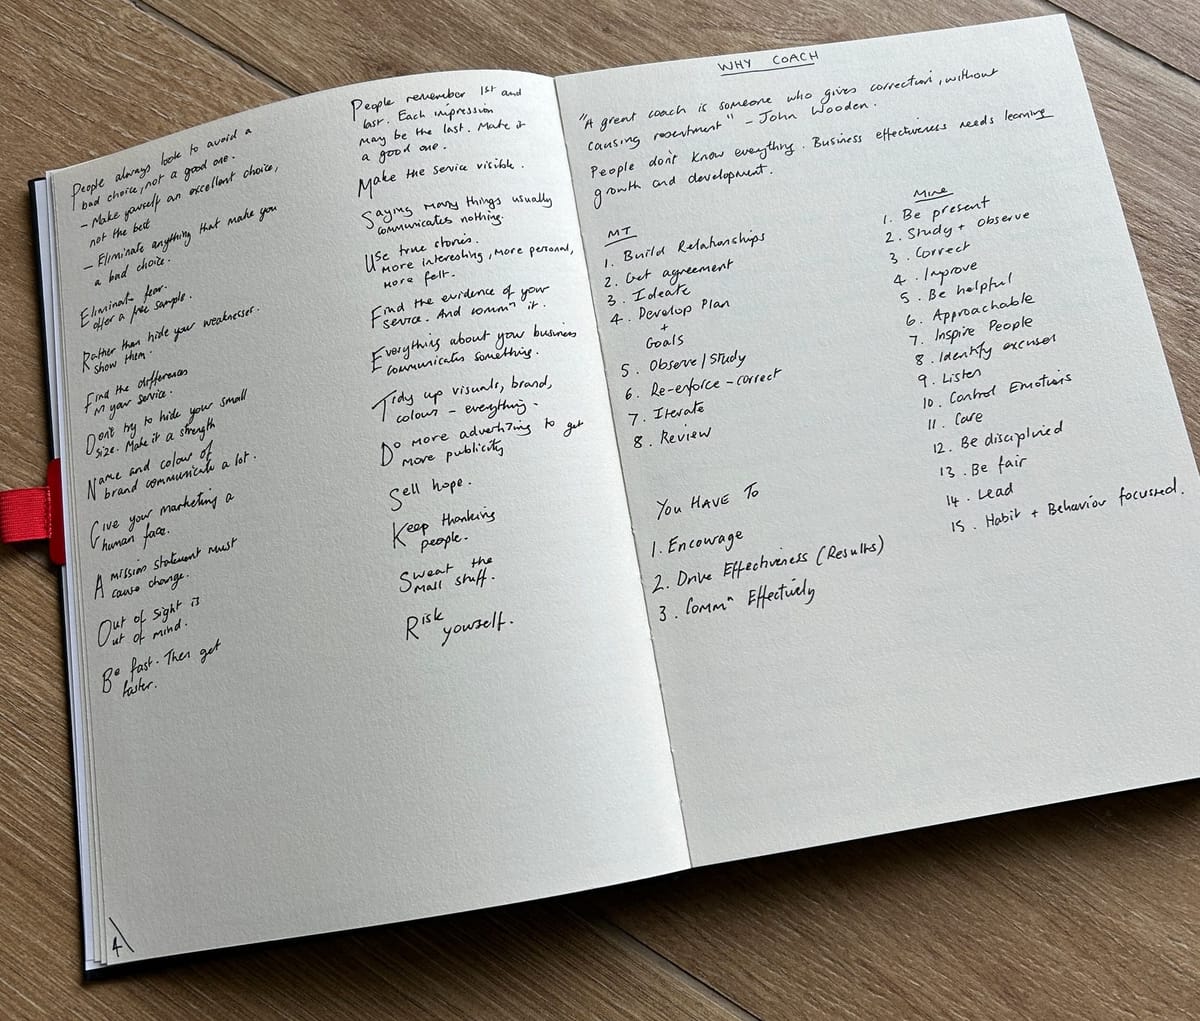 People always look to avoid a
bad choice, not a good one.
- Make yourself an excellent choice,
not the best
- Eliminate anything that make you
a bad choice.
Eliminate fear.
Offer a free sample.
Rather than hide your weaknesses.
show them.
Find the differences
in your service.
Don't try to hide your small
size. Make it a strength
Name and colour of
brand communicate a lot.
Give your marketing a
human face.
A mission statement must
cause change.
Out of sight is
out of mind.
Be fast. Then get
faster.
4
People remember 1st and
last. Each impression
may be the last. Make it
a good one.
Make the service visible.
Saying many things usually
communicates nothing.
Use true stories.
more interesting, more personal,
more felt.
Find the evidence of your
service. And commⁿ it.
Everything about your business
communicates something.
Tidy up visuals, brand,
colours - everything.
Do more advertizing to get
more publicity
Sell hope.
Keep thanking
people.
Sweat the
small stuff.
Risk
yourself.
WHY COACH
"A great coach is someone who gives correction, without
causing resentment" - John Wooden.
People don't know everything. Business effectiveness needs learning
growth and development.
MT
1. Build Relationships
2. Get agreement
3. Ideate
4. Develop Plan
+
Goals
5. Observe/Study
6. Re-enforce - correct
7. Iterate
8. Review
YOU HAVE TO
1. Encourage
2. Drive Effectiveness (Results)
3. Commⁿ Effectively
Mine
1. Be present
2. Study + observe
3. Correct
4. Improve
5. Be helpful
6. Approachable
7. Inspire People
8. Identify excuses
9. Listen
10. Control Emotions
11. Care
12. Be disciplined
13. Be fair
14. Lead
15. Habit + Behavior focussed.